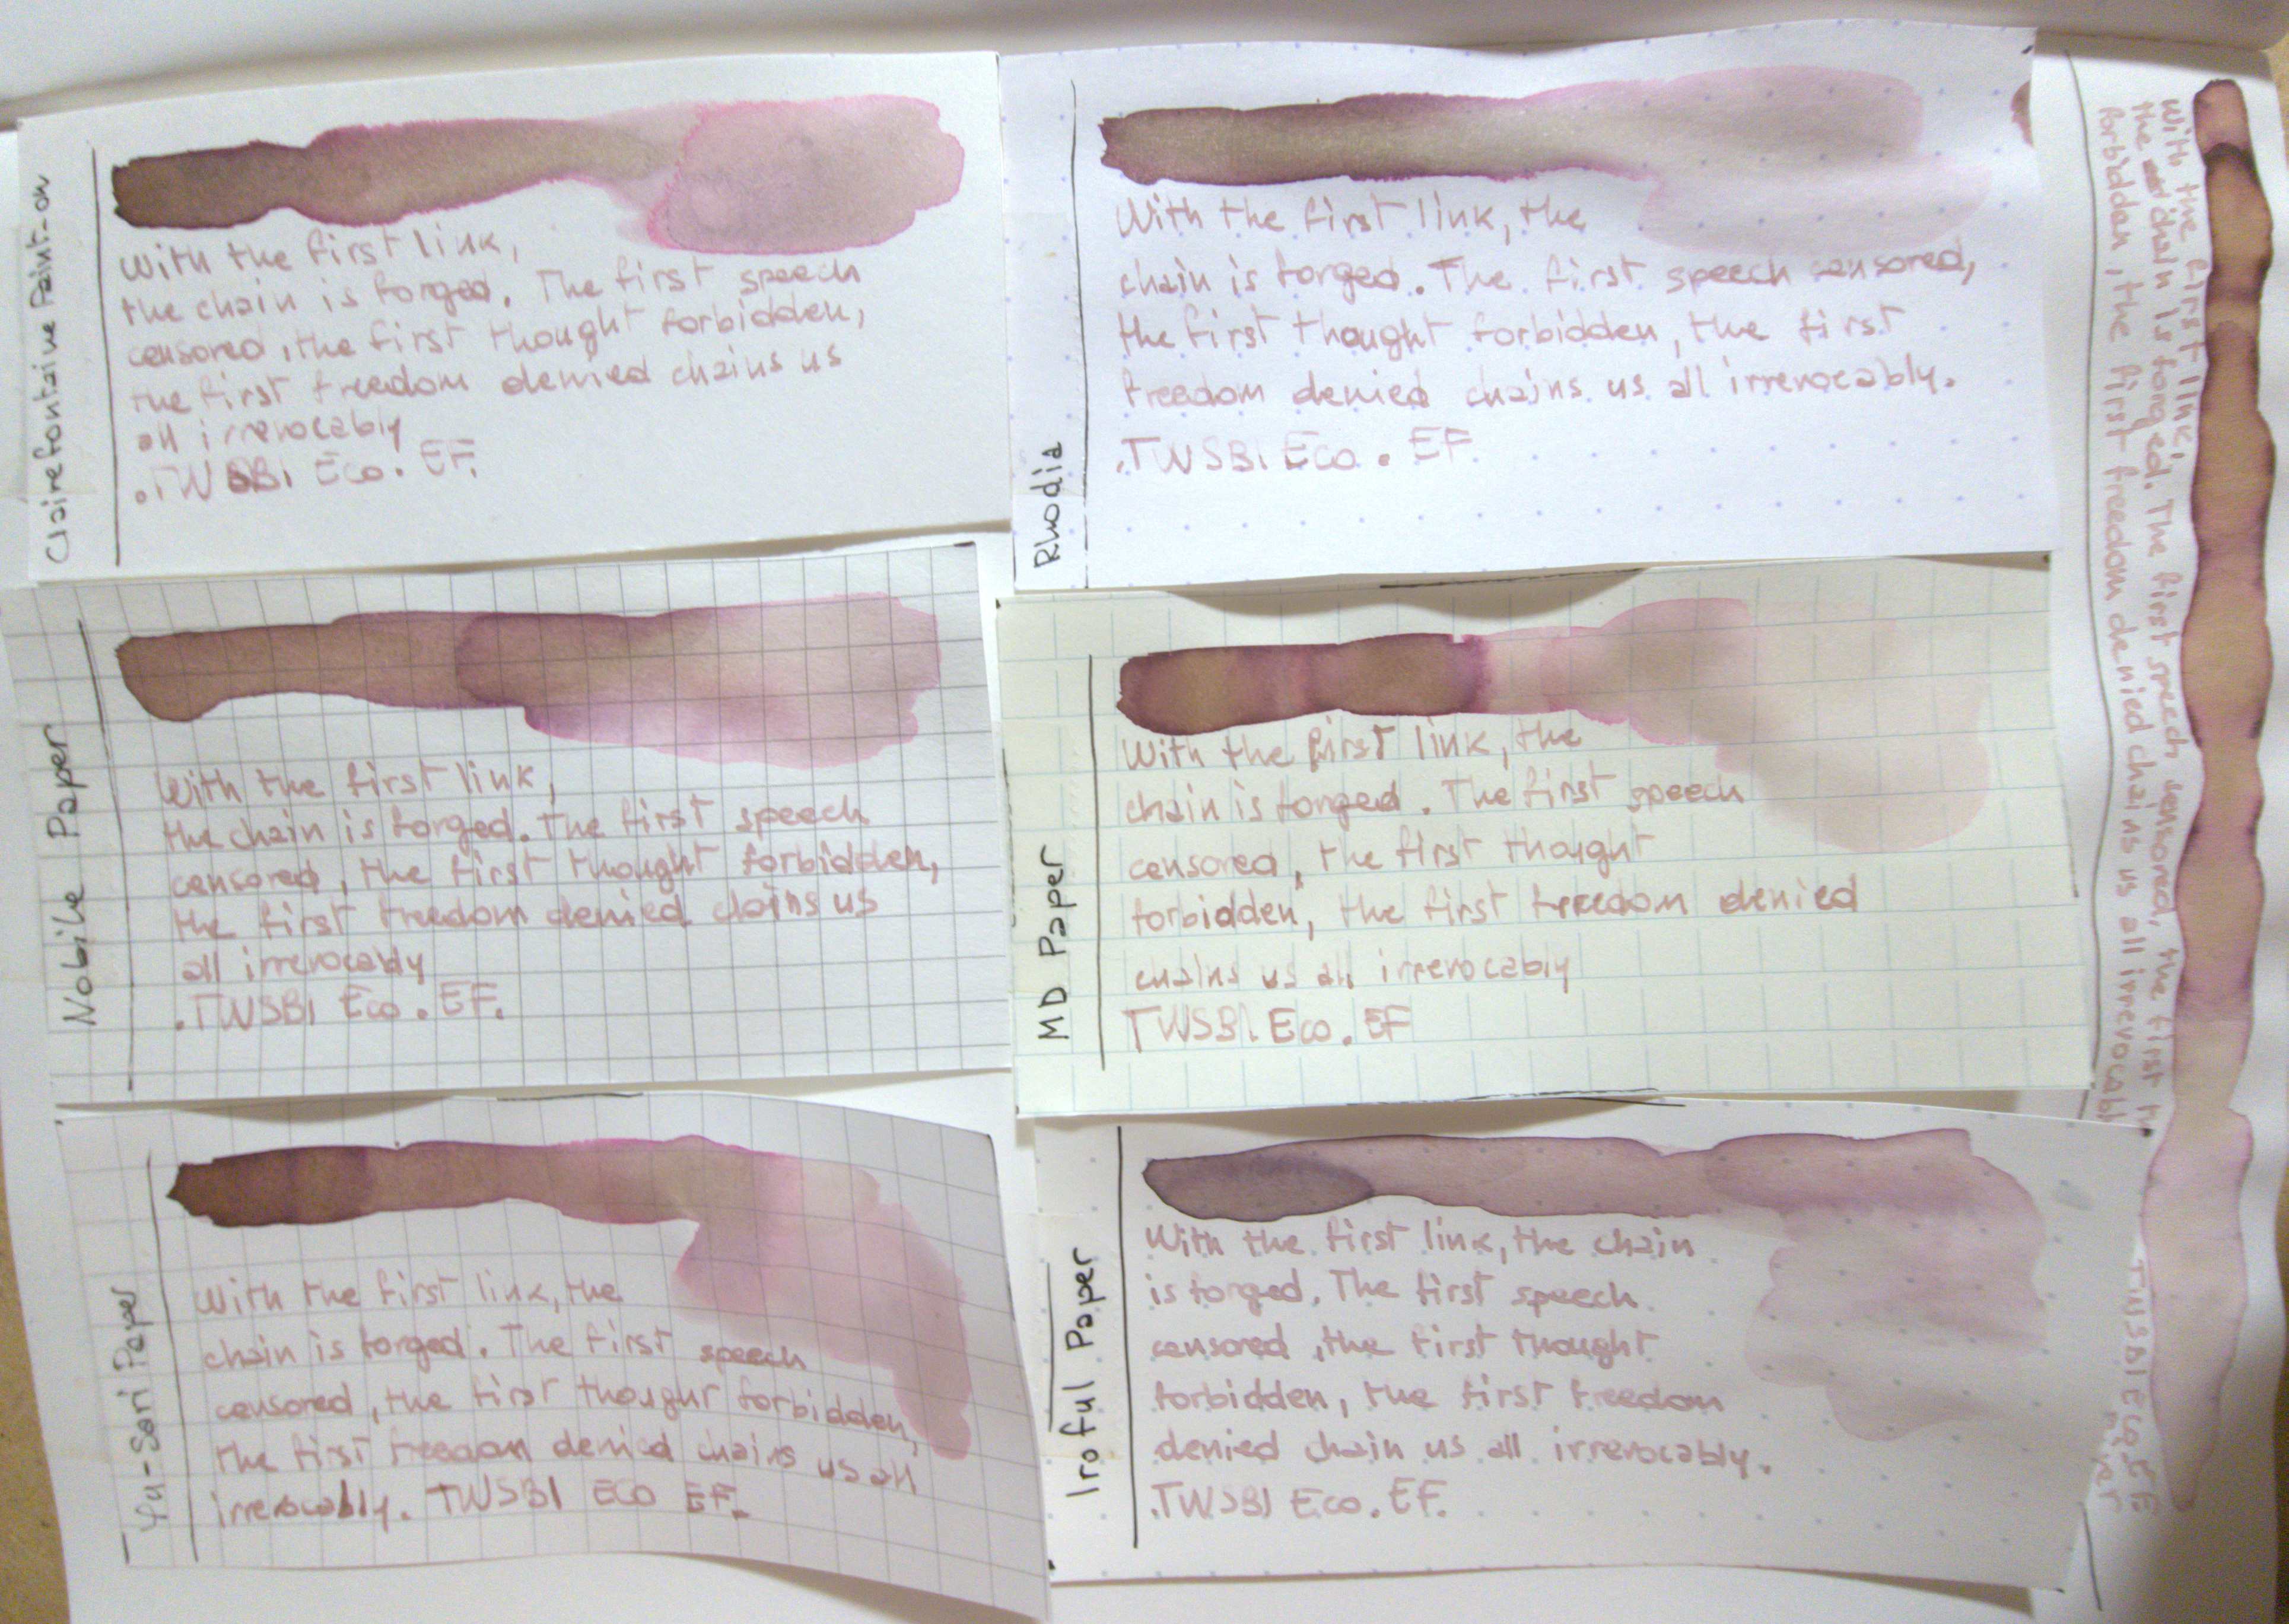 Clairefontaine Paint-on
With the first link,
the chain is forged. The first speech
censored, the first thought forbidden,
the first freedom denied chains us
all irrevocably
. TWSBI Eco. EF.
Rhodia
With the first link, the
chain is forged. The first speech censored,
the first thought forbidden, the first
freedom denied chains us all irrevocably.
. TWSBI Eco. EF
Nobile Paper
With the first link,
the chain is forged. The first speech
censored, the first thought forbidden,
the first freedom denied chains us
all irrevocably
. TWSBI Eco. EF.
MD Paper
With the first link, the
chain is forged. The first speech
censored, the first thought
forbidden, the first freedom denied
chains us all irrevocably
TWSBI. Eco. EF
Paper
With the first link, the
chain is forged. The first speech
censored, the first thought forbidden,
the first freedom denied chains us all
irrevocably. TWSBI ECO EF.
Iroful Paper
With the first link, the chain
is forged. The first speech
censored, the first thought
forbidden, the first freedom
denied chain us all irrevocably.
. TWSBI Eco. EF.
With the first link,
the chain is forged. The first speech censored, the first
forbidden, the first freedom denied chains us all irrevocabl
TWSBI Eco. EF